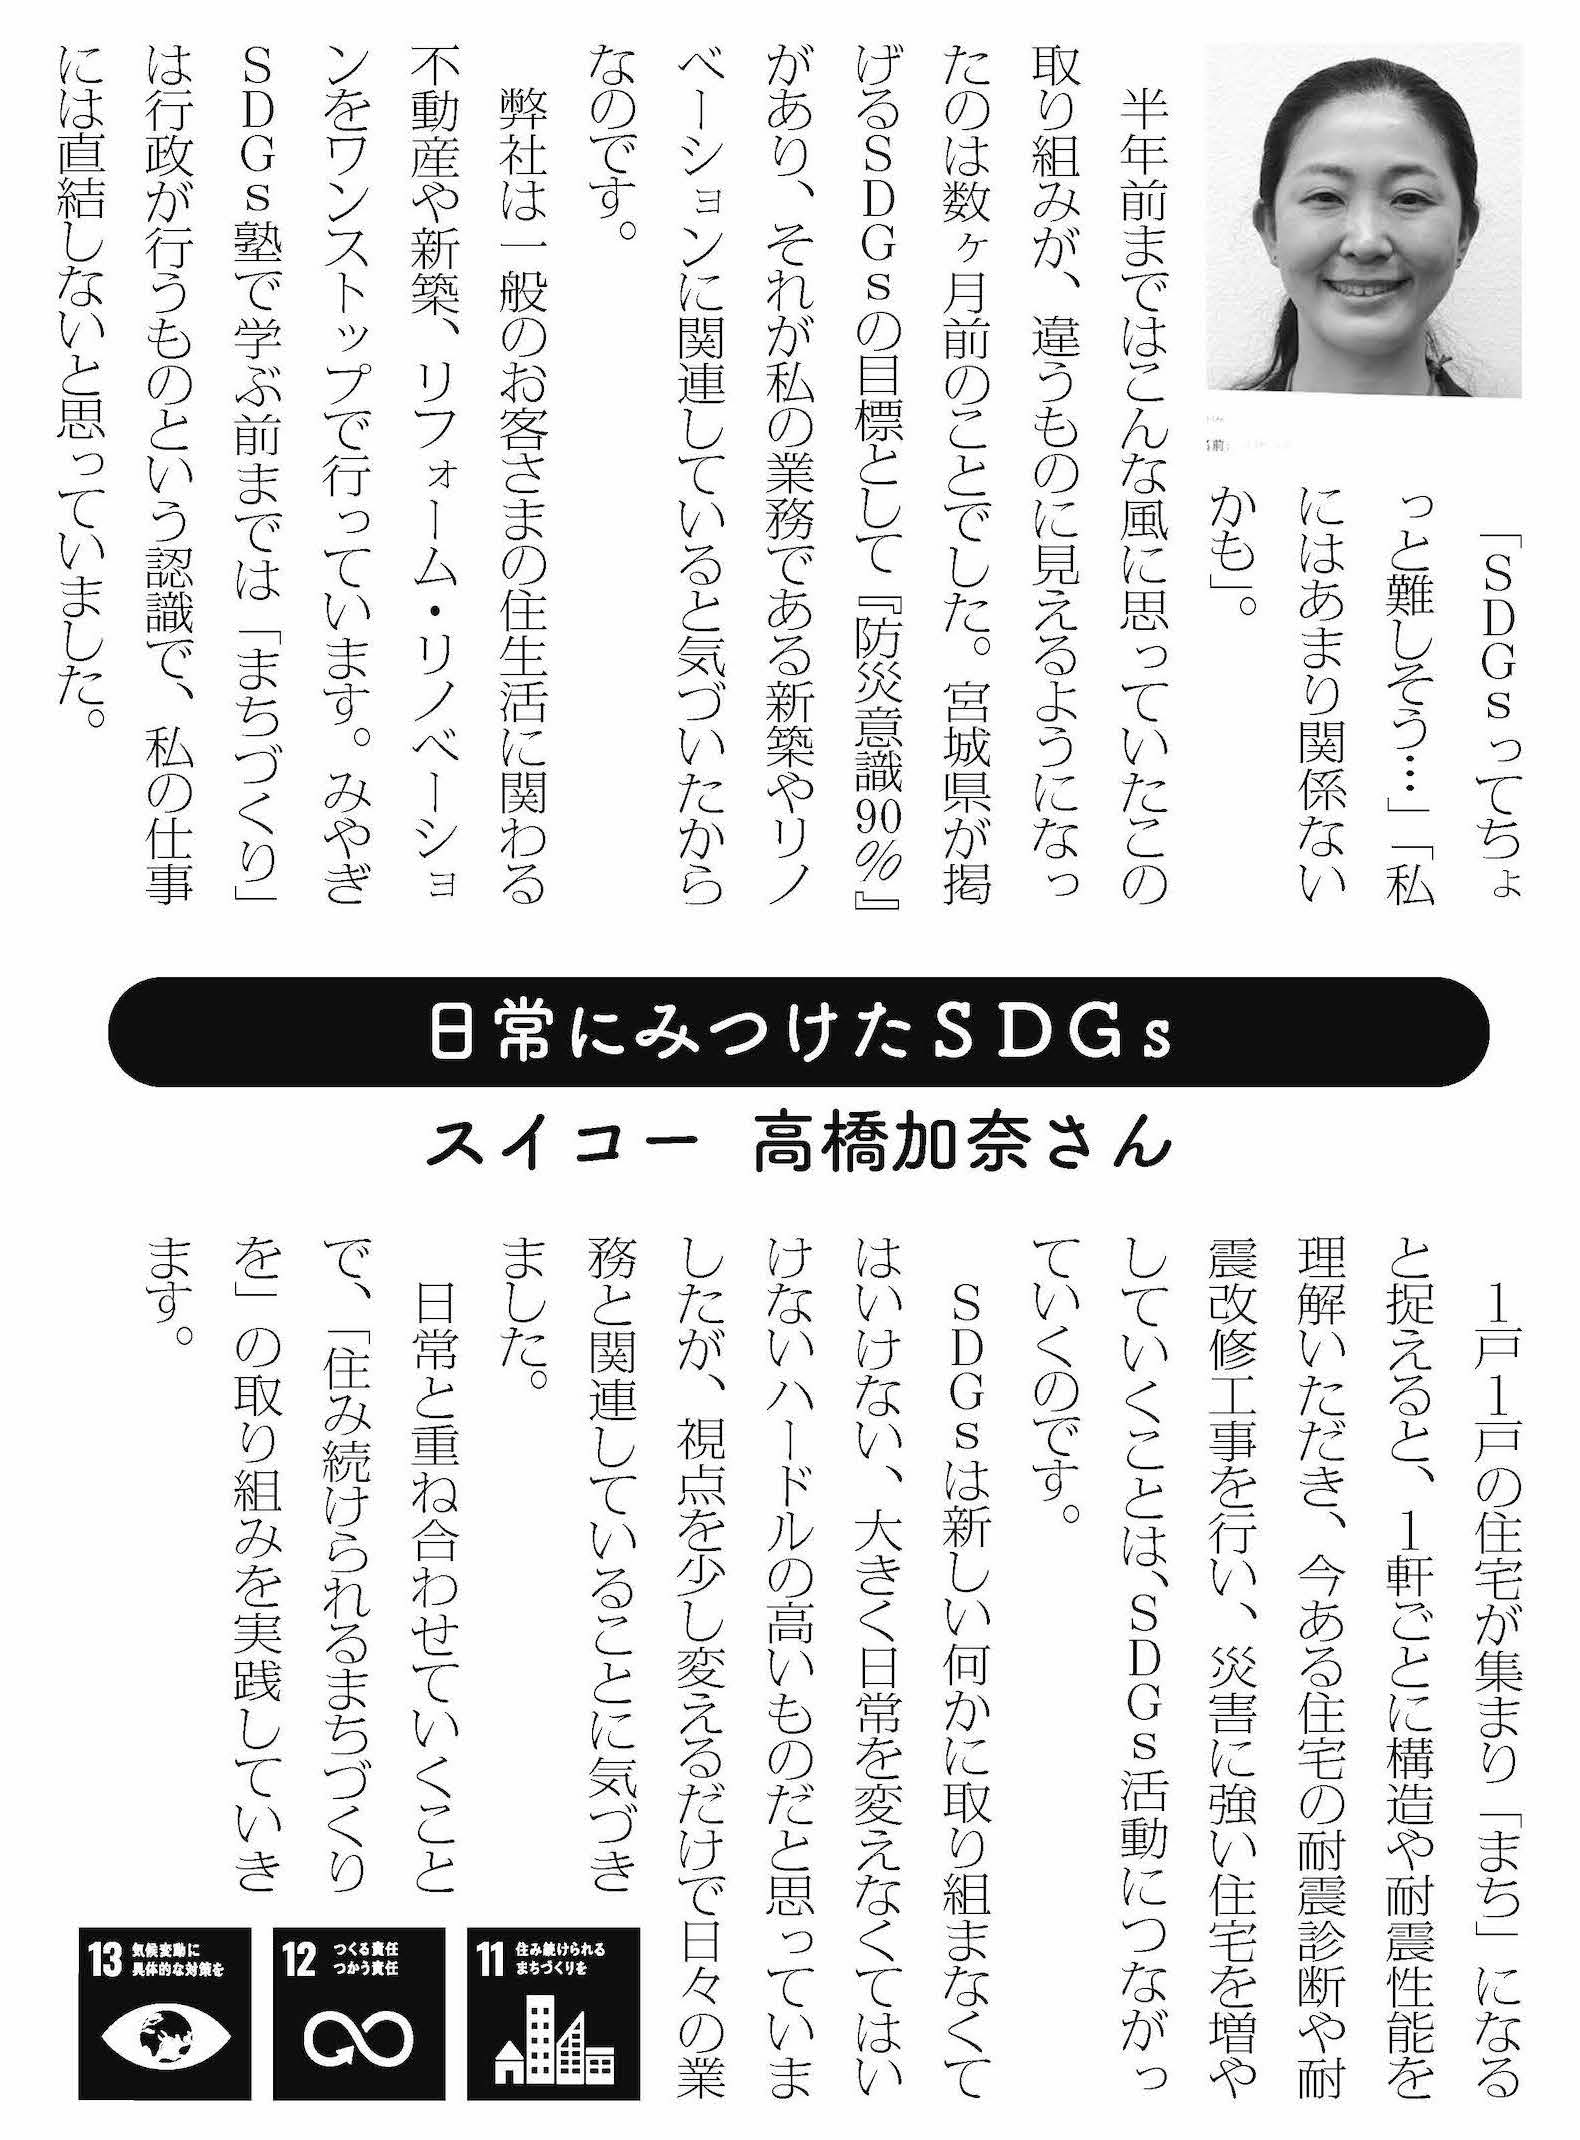 「SDGsってちょ
っと難しそう…」「私
にはあまり関係ない
かも」。
半年前まではこんな風に思っていたこの
取り組みが、違うものに見えるようになっ
たのは数ヶ月前のことでした。宮城県が掲
げるSDGsの目標として『防災意識90％』
があり、それが私の業務である新築やリノ
ベーションに関連していると気づいたから
なのです。
弊社は一般のお客さまの住生活に関わる
不動産や新築、リフォーム・リノベーショ
ンをワンストップで行っています。みやぎ
SDGs塾で学ぶ前までは「まちづくり」
は行政が行うものという認識で、私の仕事
には直結しないと思っていました。
日常にみつけたSDGs
スイコー 高橋加奈さん
1戸1戸の住宅が集まり「まち」になる
と捉えると、1軒ごとに構造や耐震性能を
理解いただき、今ある住宅の耐震診断や耐
震改修工事を行い、災害に強い住宅を増や
していくことは、SDGs活動につながっ
ていくのです。
SDGsは新しい何かに取り組まなくて
はいけない、大きく日常を変えなくてはい
けないハードルの高いものだと思っていま
したが、視点を少し変えるだけで日々の業
務と関連していることに気づき
ました。
日常と重ね合わせていくこと
で、「住み続けられるまちづくり
を」の取り組みを実践していき
ます。
11 住み続けられる
まちづくりを
12 つくる責任
つかう責任
13 気候変動に
具体的な対策を